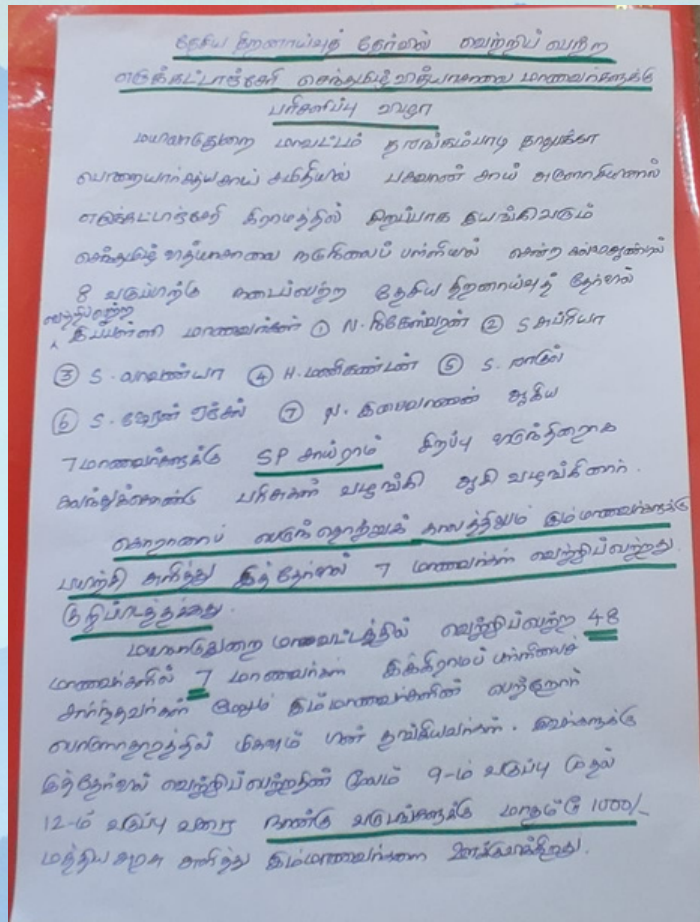 தேசிய திறனாய்வுத் தேர்வில் வெற்றிப் பெற்ற
எடுக்கட்டாஞ்சேரி செந்தமிழ் வித்யாசாலை மாணவர்களுக்கு
பரிசளிப்பு விழா
மயிலாடுதுறை மாவட்டம் தரங்கம்பாடி தாலுக்கா
பொறையார் சத்யசாய் சமிதியில் பகவான் சாய் அருளாசியினால்
எடுக்கட்டாஞ்சேரி கிராமத்தில் சிறப்பாக இயங்கிவரும்
செந்தமிழ் வித்யாசாலை நடுநிலைப் பள்ளியில் சென்ற கல்வி ஆண்டில்
8 வகுப்பிற்கு நடைபெற்ற தேசிய திறனாய்வுத் தேர்வில்
வெற்றிபெற்ற
இப்பள்ளி மாணவர்கள் ① N. விக்னேஸ்வரன் ② S சுப்ரியா
③ S. லாவண்யா ④ H. மணிகண்டன் ⑤ S. ராகுல்
⑥ S. ஜேரன் ⑦ N. இசைவாணன் ஆகிய
7 மாணவர்களுக்கு SP சாய்ராம் சிறப்பு விருந்தினராக
கலந்துக்கொண்டு பரிசுகள் வழங்கி ஆசி வழங்கினார்.
கொரானாப் பெருந்தொற்றுக் காலத்திலும் இம்மாணவர்களுக்கு
பயிற்சி அளித்து இத்தேர்வில் 7 மாணவர்கள் வெற்றிப்பெற்றது
குறிப்பிடத்தக்கது.
மயிலாடுதுறை மாவட்டத்தில் வெற்றிப்பெற்ற 48
மாணவர்களில் 7 மாணவர்கள் இக்கிராமப் பள்ளியைச்
சார்ந்தவர்கள் மேலும் இம்மாணவர்களின் பெற்றோர்
பொருளாதாரத்தில் மிகவும் பின் தங்கியவர்கள். இவர்களுக்கு
இத்தேர்வில் வெற்றிப்பெற்றதின் மூலம் 9-ம் வகுப்பு முதல்
12-ம் வகுப்பு வரை நான்கு வருடங்களுக்கு மாதம் ரூ 1000/-
மத்திய அரசு அளித்து இம்மாணவர்களை ஊக்குவிக்கிறது.